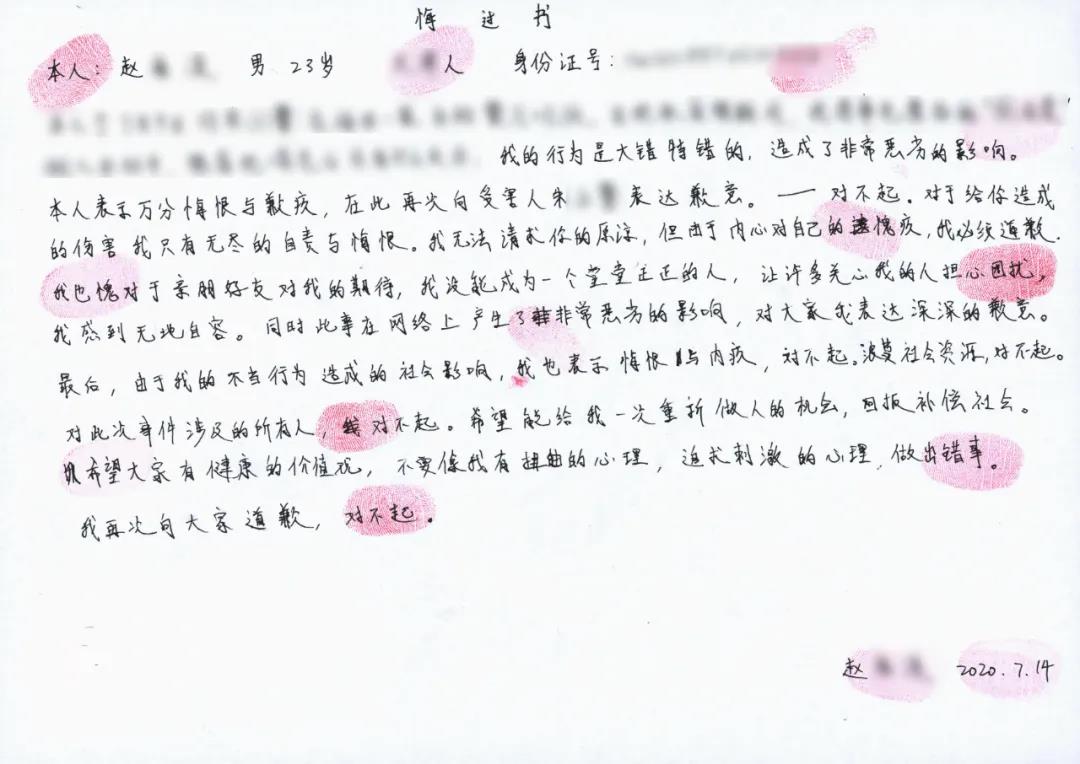 悔过书
本人：赵 男 23岁 人 身份证号：
我的行为是大错特错的，造成了非常恶劣的影响。
本人表示万分悔恨与歉疚，在此再次向受害人朱 表达歉意。——对不起。对于给你造成
的伤害我只有无尽的自责与悔恨。我无法请求你的原谅，但由于内心对自己的愧疚，我必须道歉.
我也愧对于亲朋好友对我的期待，我没能成为一个堂堂正正的人，让许多关心我的人担心困扰，
我感到无地自容。同时此事在网络上产生了非常恶劣的影响，对大家我表达深深的歉意。
最后，由于我的不当行为造成的社会影响，我也表示悔恨与内疚，对不起。浪费社会资源，对不起。
对此次事件涉及的所有人，对不起。希望能给我一次重新做人的机会，回报补偿社会。
希望大家有健康的价值观，不要像我有扭曲的心理，追求刺激的心理，做出错事。
我再次向大家道歉，对不起。
赵 2020.7.14